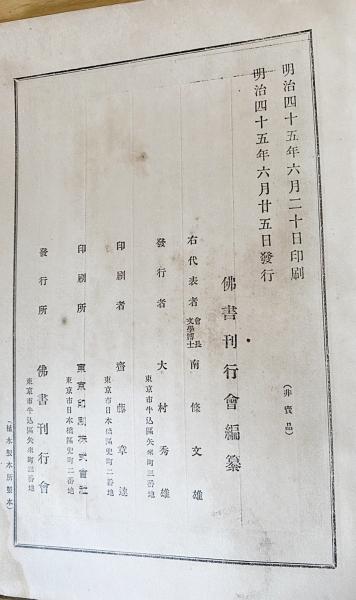 明治四十五年六月二十日印刷
明治四十五年六月廿五日發行
(非賣品)
佛書刊行會編纂
右代表者 會長 文學博士 南條文雄
發行者 大村秀雄
東京市牛込區矢來町三番地
印刷者 齋藤章達
東京市日本橋區兜町二番地
印刷所 東京印刷株式會社
東京市日本橋區兜町二番地
發行所 佛書刊行會
東京市牛込區矢來町三番地
(植木製本所製本)